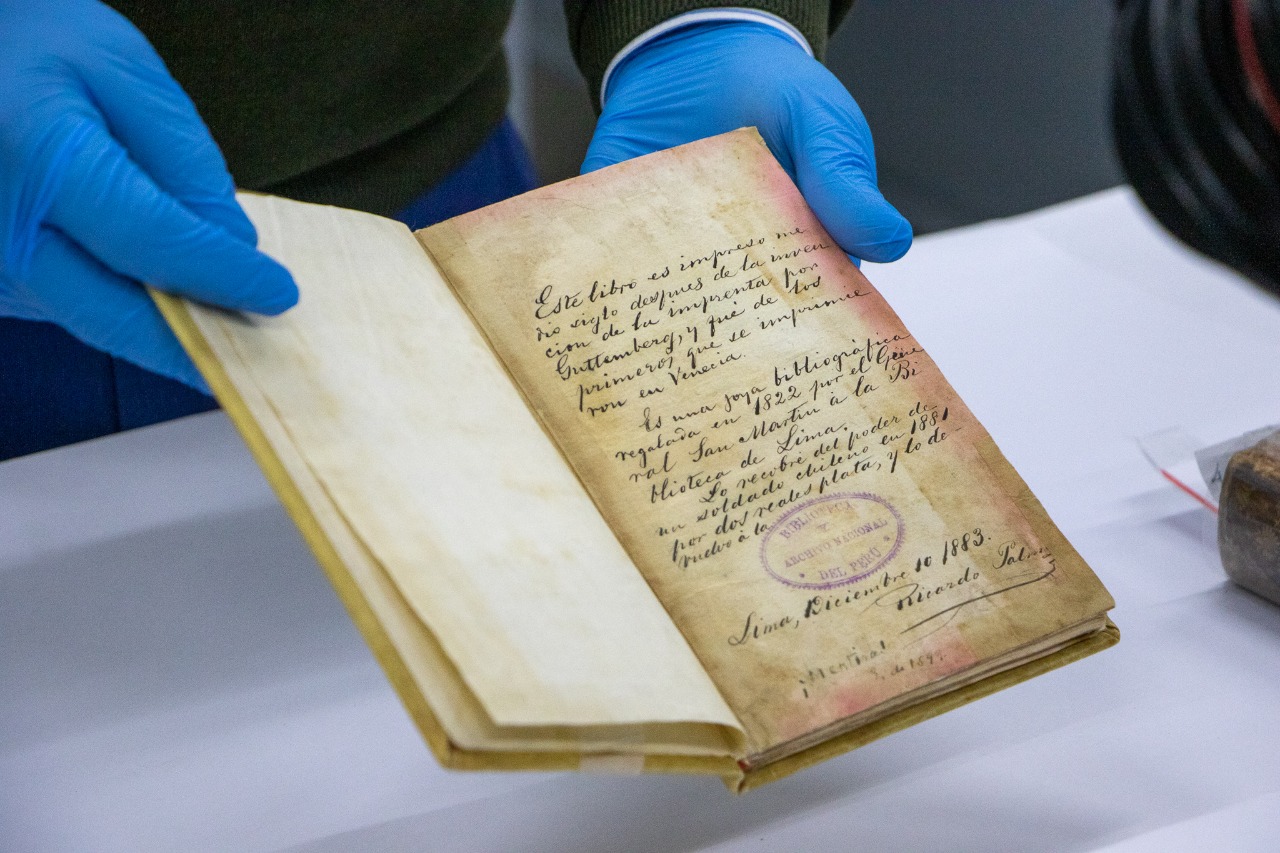 Este libro es impreso me
dio siglo despues de la inven
cion de la imprenta por
Guttemberg, y fué de los
primeros que se imprimie
ron en Venecia.
Es una joya bibliográfica
regalada en 1822 por el Gene
ral San Martin à la Bi
blioteca de Lima.
Lo recobré del poder de
un soldado chileno en 1881
por dos reales plata, y lo de-
vuelvo à la
BIBLIOTECA
Y
ARCHIVO NACIONAL
DEL PERÚ
Lima, Diciembre 10 1883.
Ricardo Palma
¡Mentira!